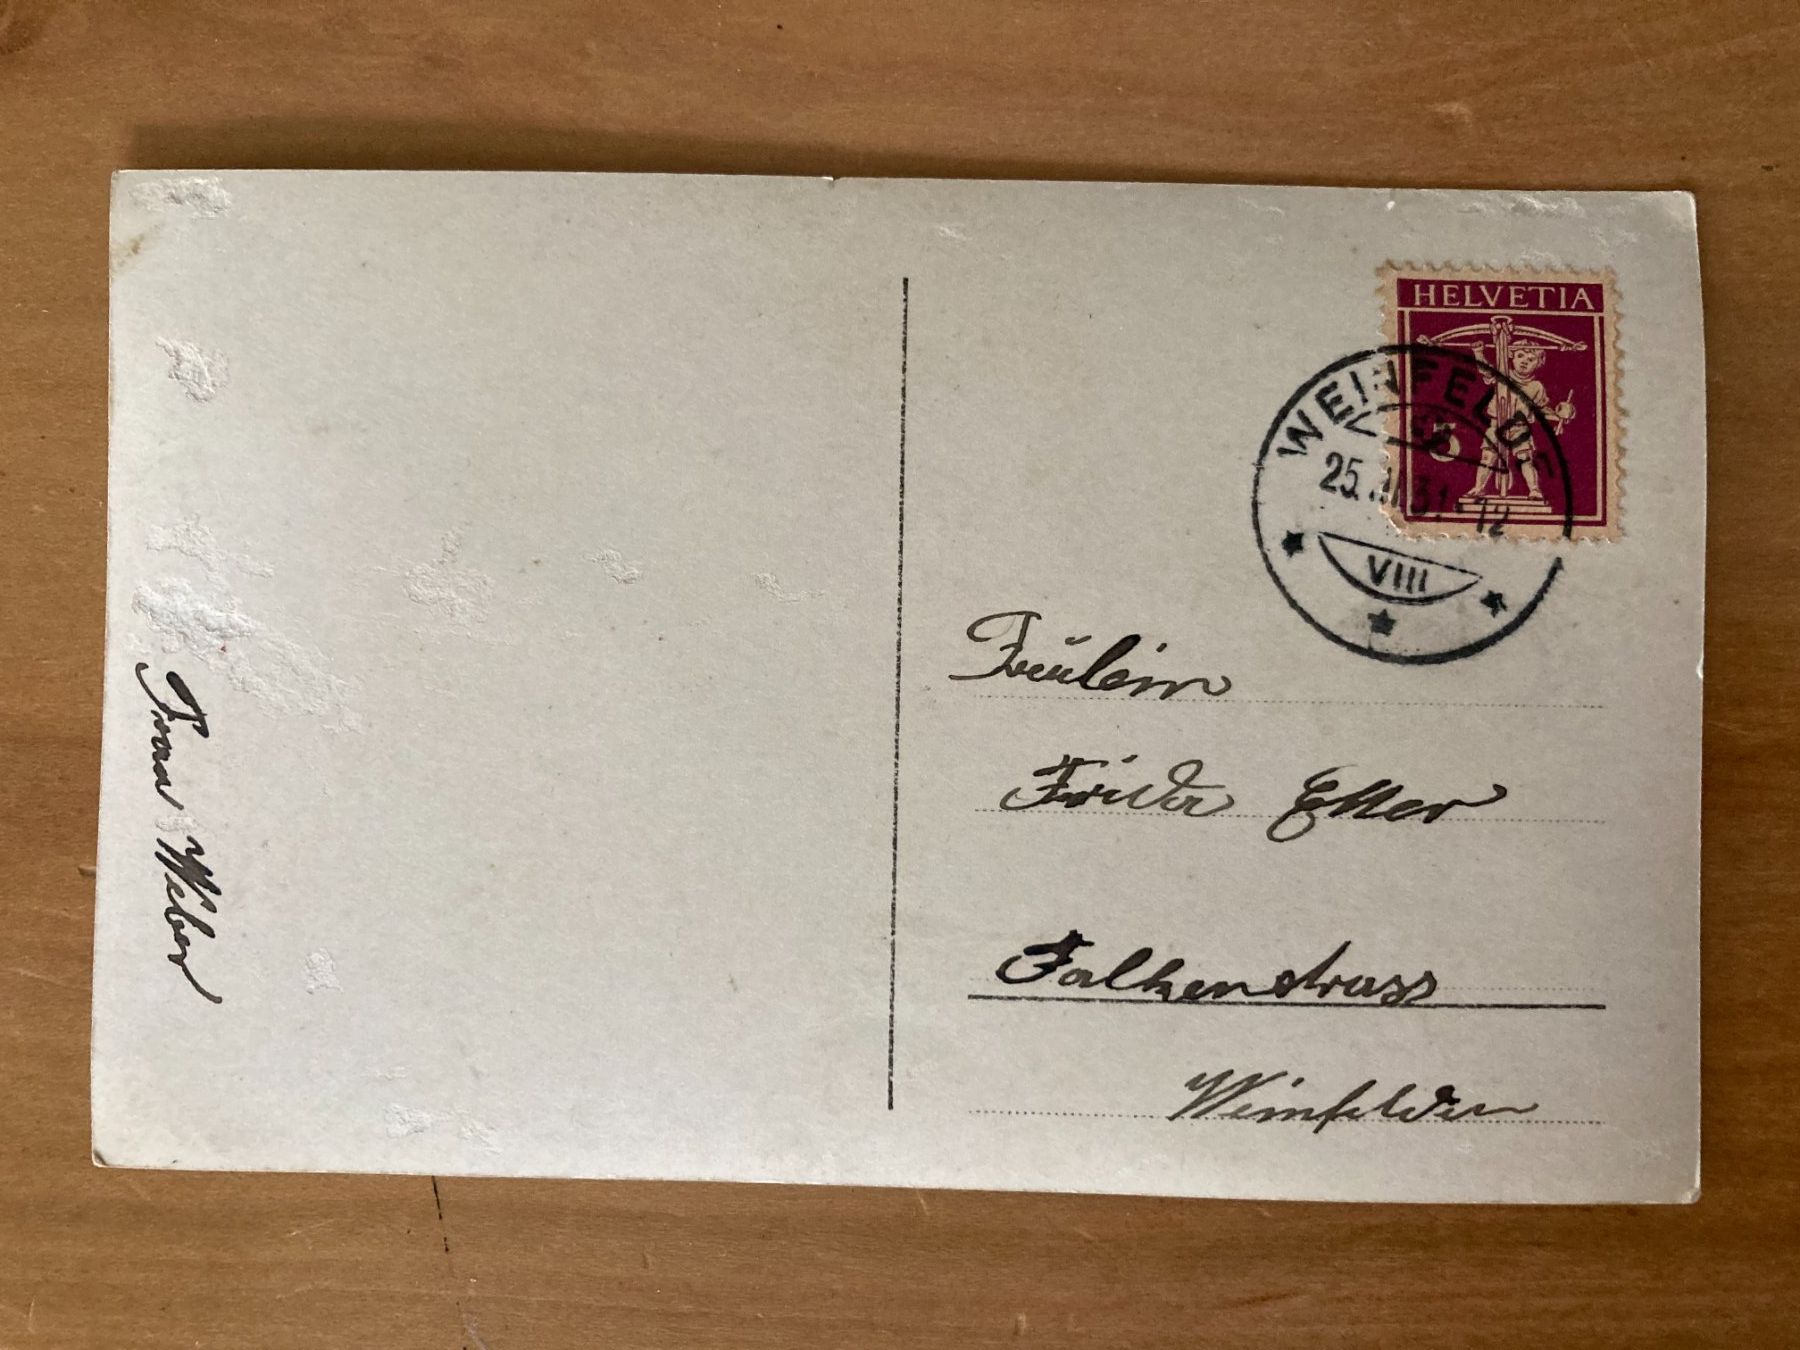 HELVETIA
5
WEINFELDEN
25. 31.-12
VIII
Fräulein
Frida Etter
Falkenstrass
Weinfelden
Frau Weber